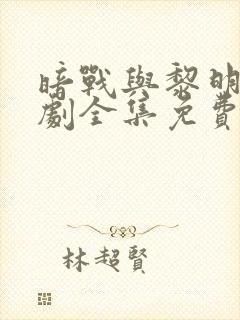 暗戰與黎明
劇全集免費
林超賢